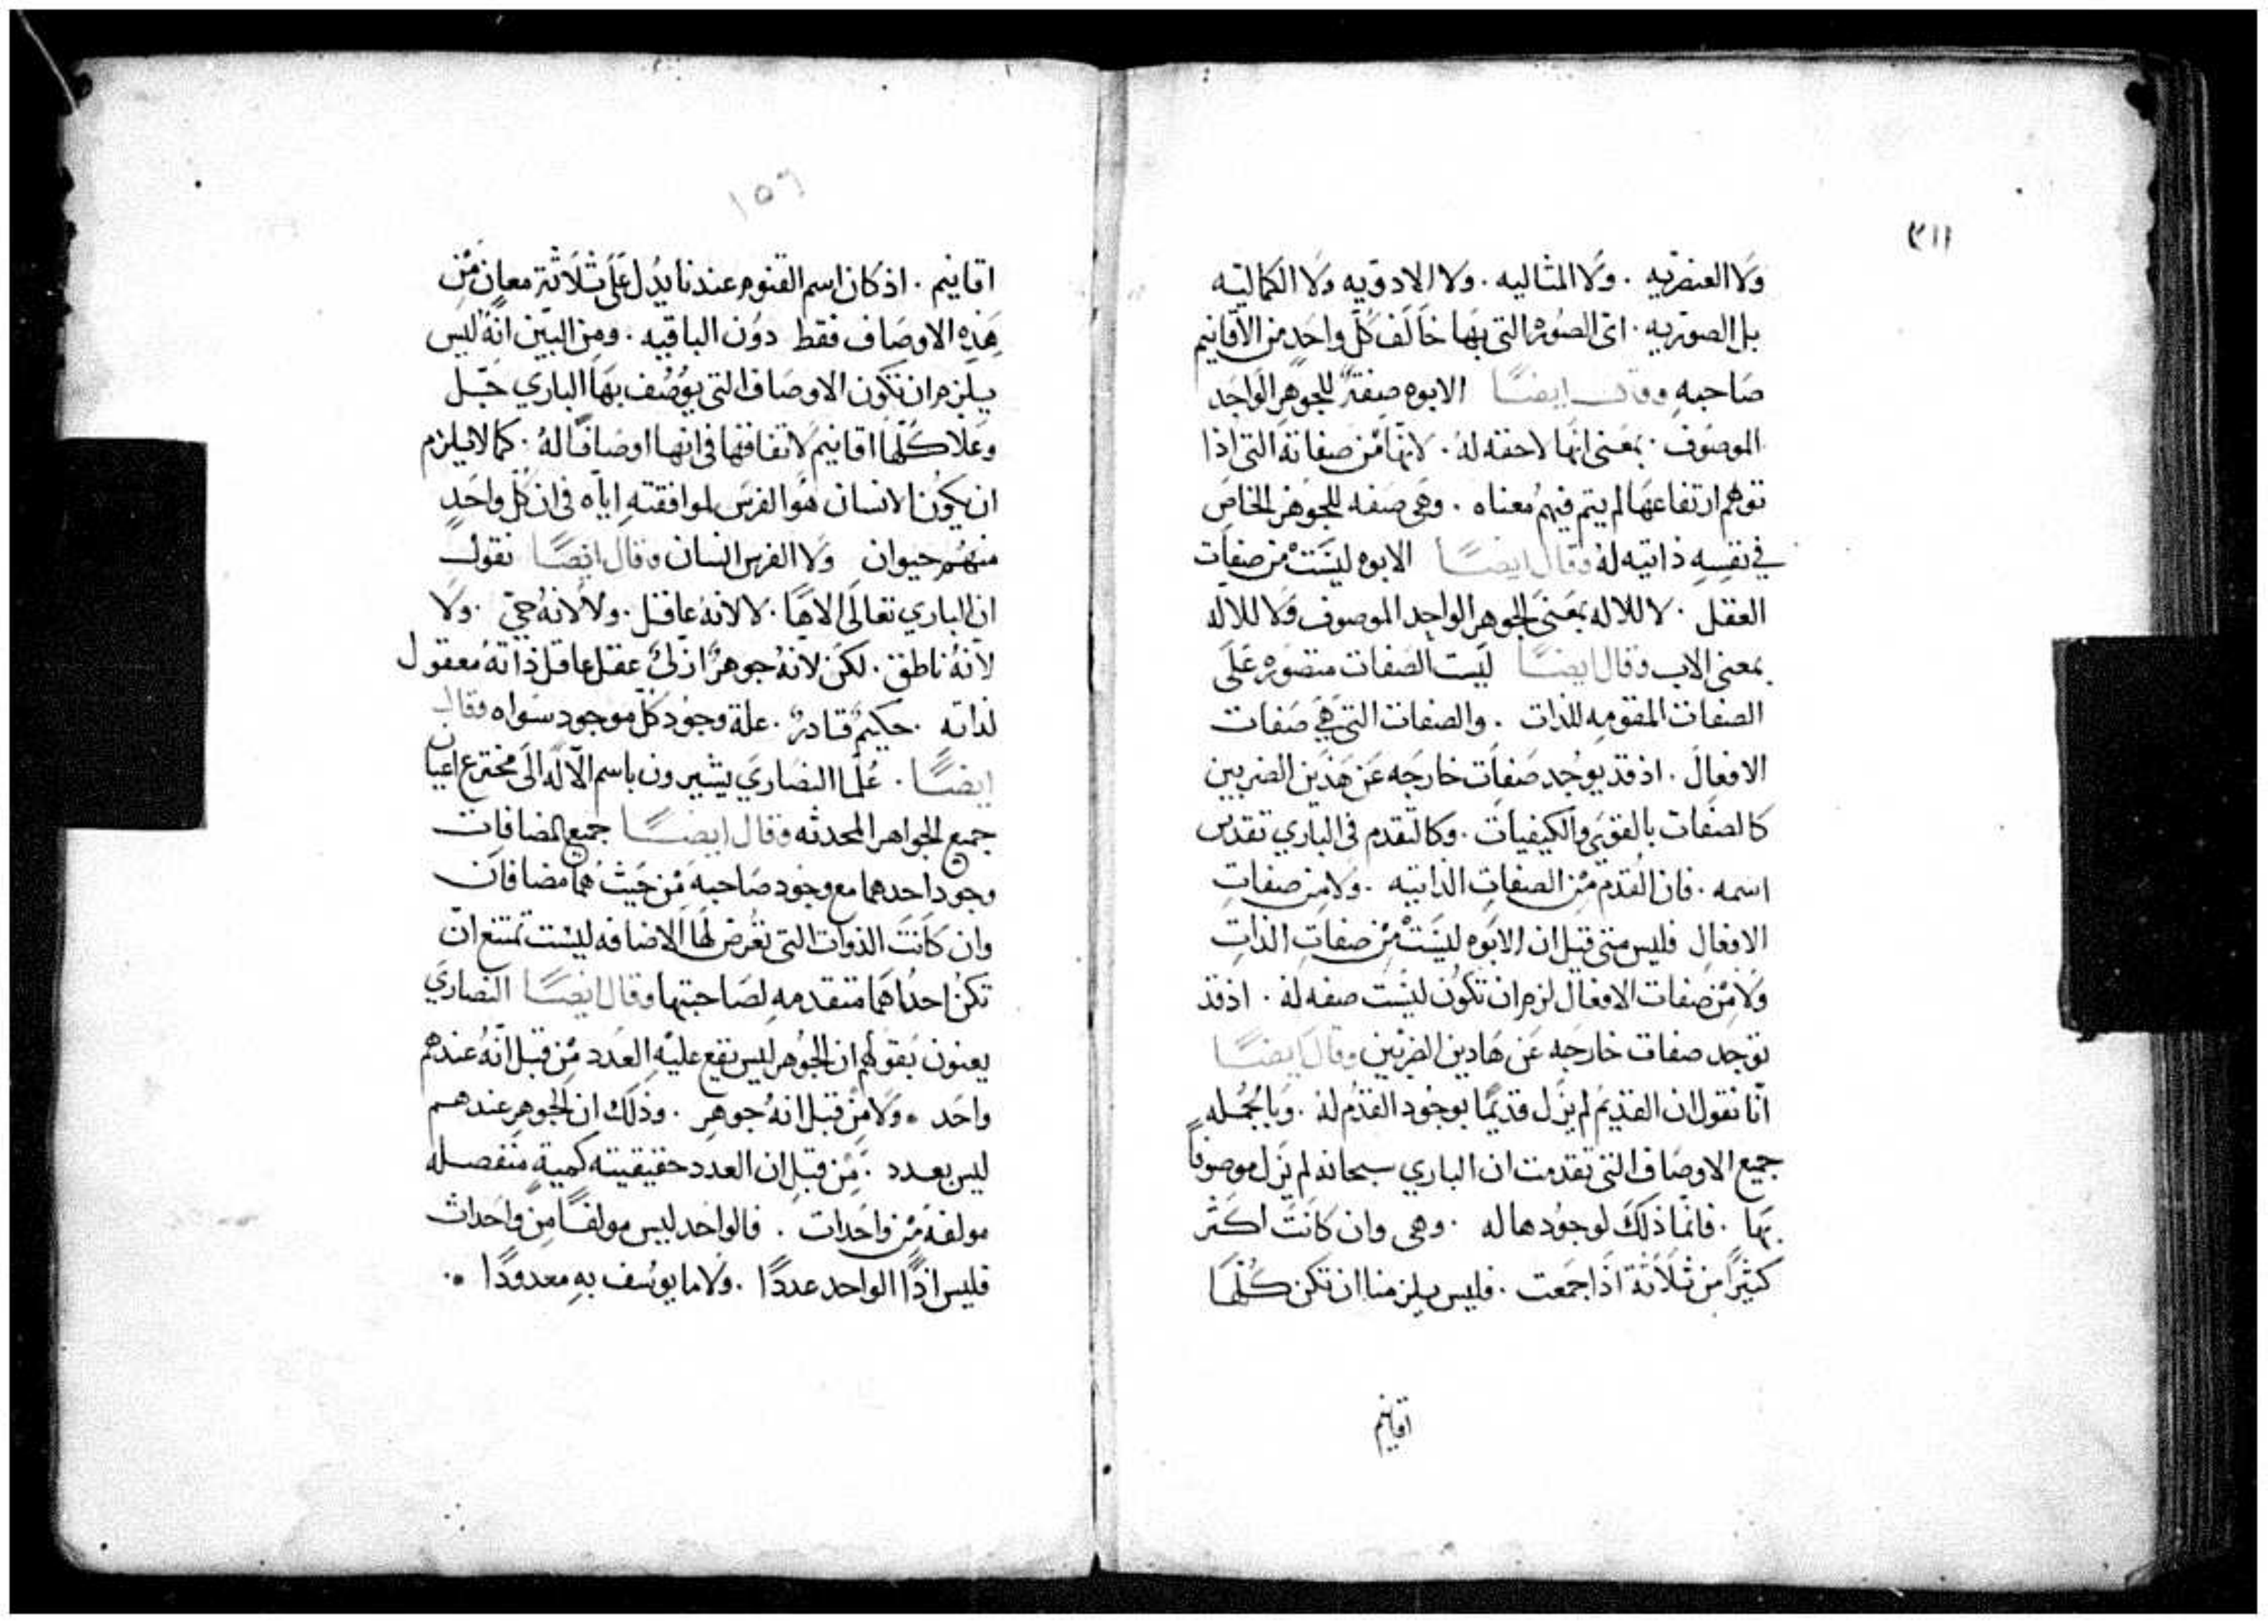 ٣١١
ولا العنصريه . ولا المثاليه . ولا الادويه ولا الكماليه
بل الصوريه . اى الصوره التي بها خالف كل واحد من الاقانيم
صاحبه وقال ايضًا الابوه صفةٌ للجوهر الواحد
الموصوف . بمعنى انها لاحقه له . لانها من صفاته التي اذا
توهم ارتفاعها لم يتم فيهم معناه . وهي صفه للجوهر الخاص
في نفسه ذاتيه له وقال ايضًا الابوه ليست من صفات
العقل . لا للاله بمعنى الجوهر الواحد الموصوف ولا للاله
بمعنى الاب وقال ايضًا ليست الصفات متصوره على
الصفات المقومه للذات . والصفات التي هي صفات
الافعال . اذ قد يوجد صفات خارجه عن هذين الضربين
كالصفات بالقوي والكيفيات . وكالتقدم في الباري تقدس
اسمه . فان القدم من الصفات الذاتيه . ولا من صفات
الافعال فليس متى قيل ان الابوه ليست من صفات الذات
ولا من صفات الافعال لزم ان تكون ليست صفه له . اذ قد
توجد صفات خارجه عن هادين الضربين وقال ايضًا
انا نقول ان القديم لم يزل قديمًا بوجود القدم له . وبالجمله
جميع الاوصاف التي تقدمت ان الباري سبحانه لم يزل موصوفًا
بها . فانما ذلك لوجودها له . وهى وان كانت اكثر
كثيرًا من ثلاثة اذا جمعت . فليس يلزمنا ان تكن كلها
اقانيم
١٥٦
اقانيم . اذ كان اسم القنوم عندنا يدل على ثلاثة معان من
هذه الاوصاف فقط دون الباقيه . ومن البين انه ليس
يلزم ان تكون الاوصاف التي يوصف بها الباري جل
وعلا كلها اقانيم لاتفاقها في انها اوصافًا له . كما لا يلزم
ان يكون الانسان هو الفرس لموافقته اياه في ان كل واحد
منهم حيوان ولا الفرس انسان وقال ايضًا نقول
ان الباري تعالى الاهًا . لا لانه عاقل . ولا لانه حي . ولا
لانه ناطق . لكن لانه جوهرٌ ازلى عقل عاقل ذاته معقول
لذاته . حكيمٌ قادرٌ . علة وجود كل موجود سواه وقال
ايضًا . علما النصاري يشيرون باسم الاله الى مخترع اعيان
جميع الجواهر المحدثه وقال ايضًا جميع المضافات
وجود احدهما مع وجود صاحبه من حيث هما مضافان
وان كانت الذوات التي تعرض لها الاضافه ليست تمتنع ان
تكن احداهما متقدمه لصاحبتها وقال ايضًا النصاري
يعنون بقولهم ان الجوهر ليس يقع عليه العدد من قبل انه عندهم
واحد . ولا من قبل انه جوهر . وذلك ان الجوهر عندهم
ليس بعدد . من قبل ان العدد حقيقيته كمية منفصله
مولفة من واحدات . فالواحد ليس مولفًا من واحداث
فليس اذًا الواحد عددًا . ولا ما يوسف به معدودًا .